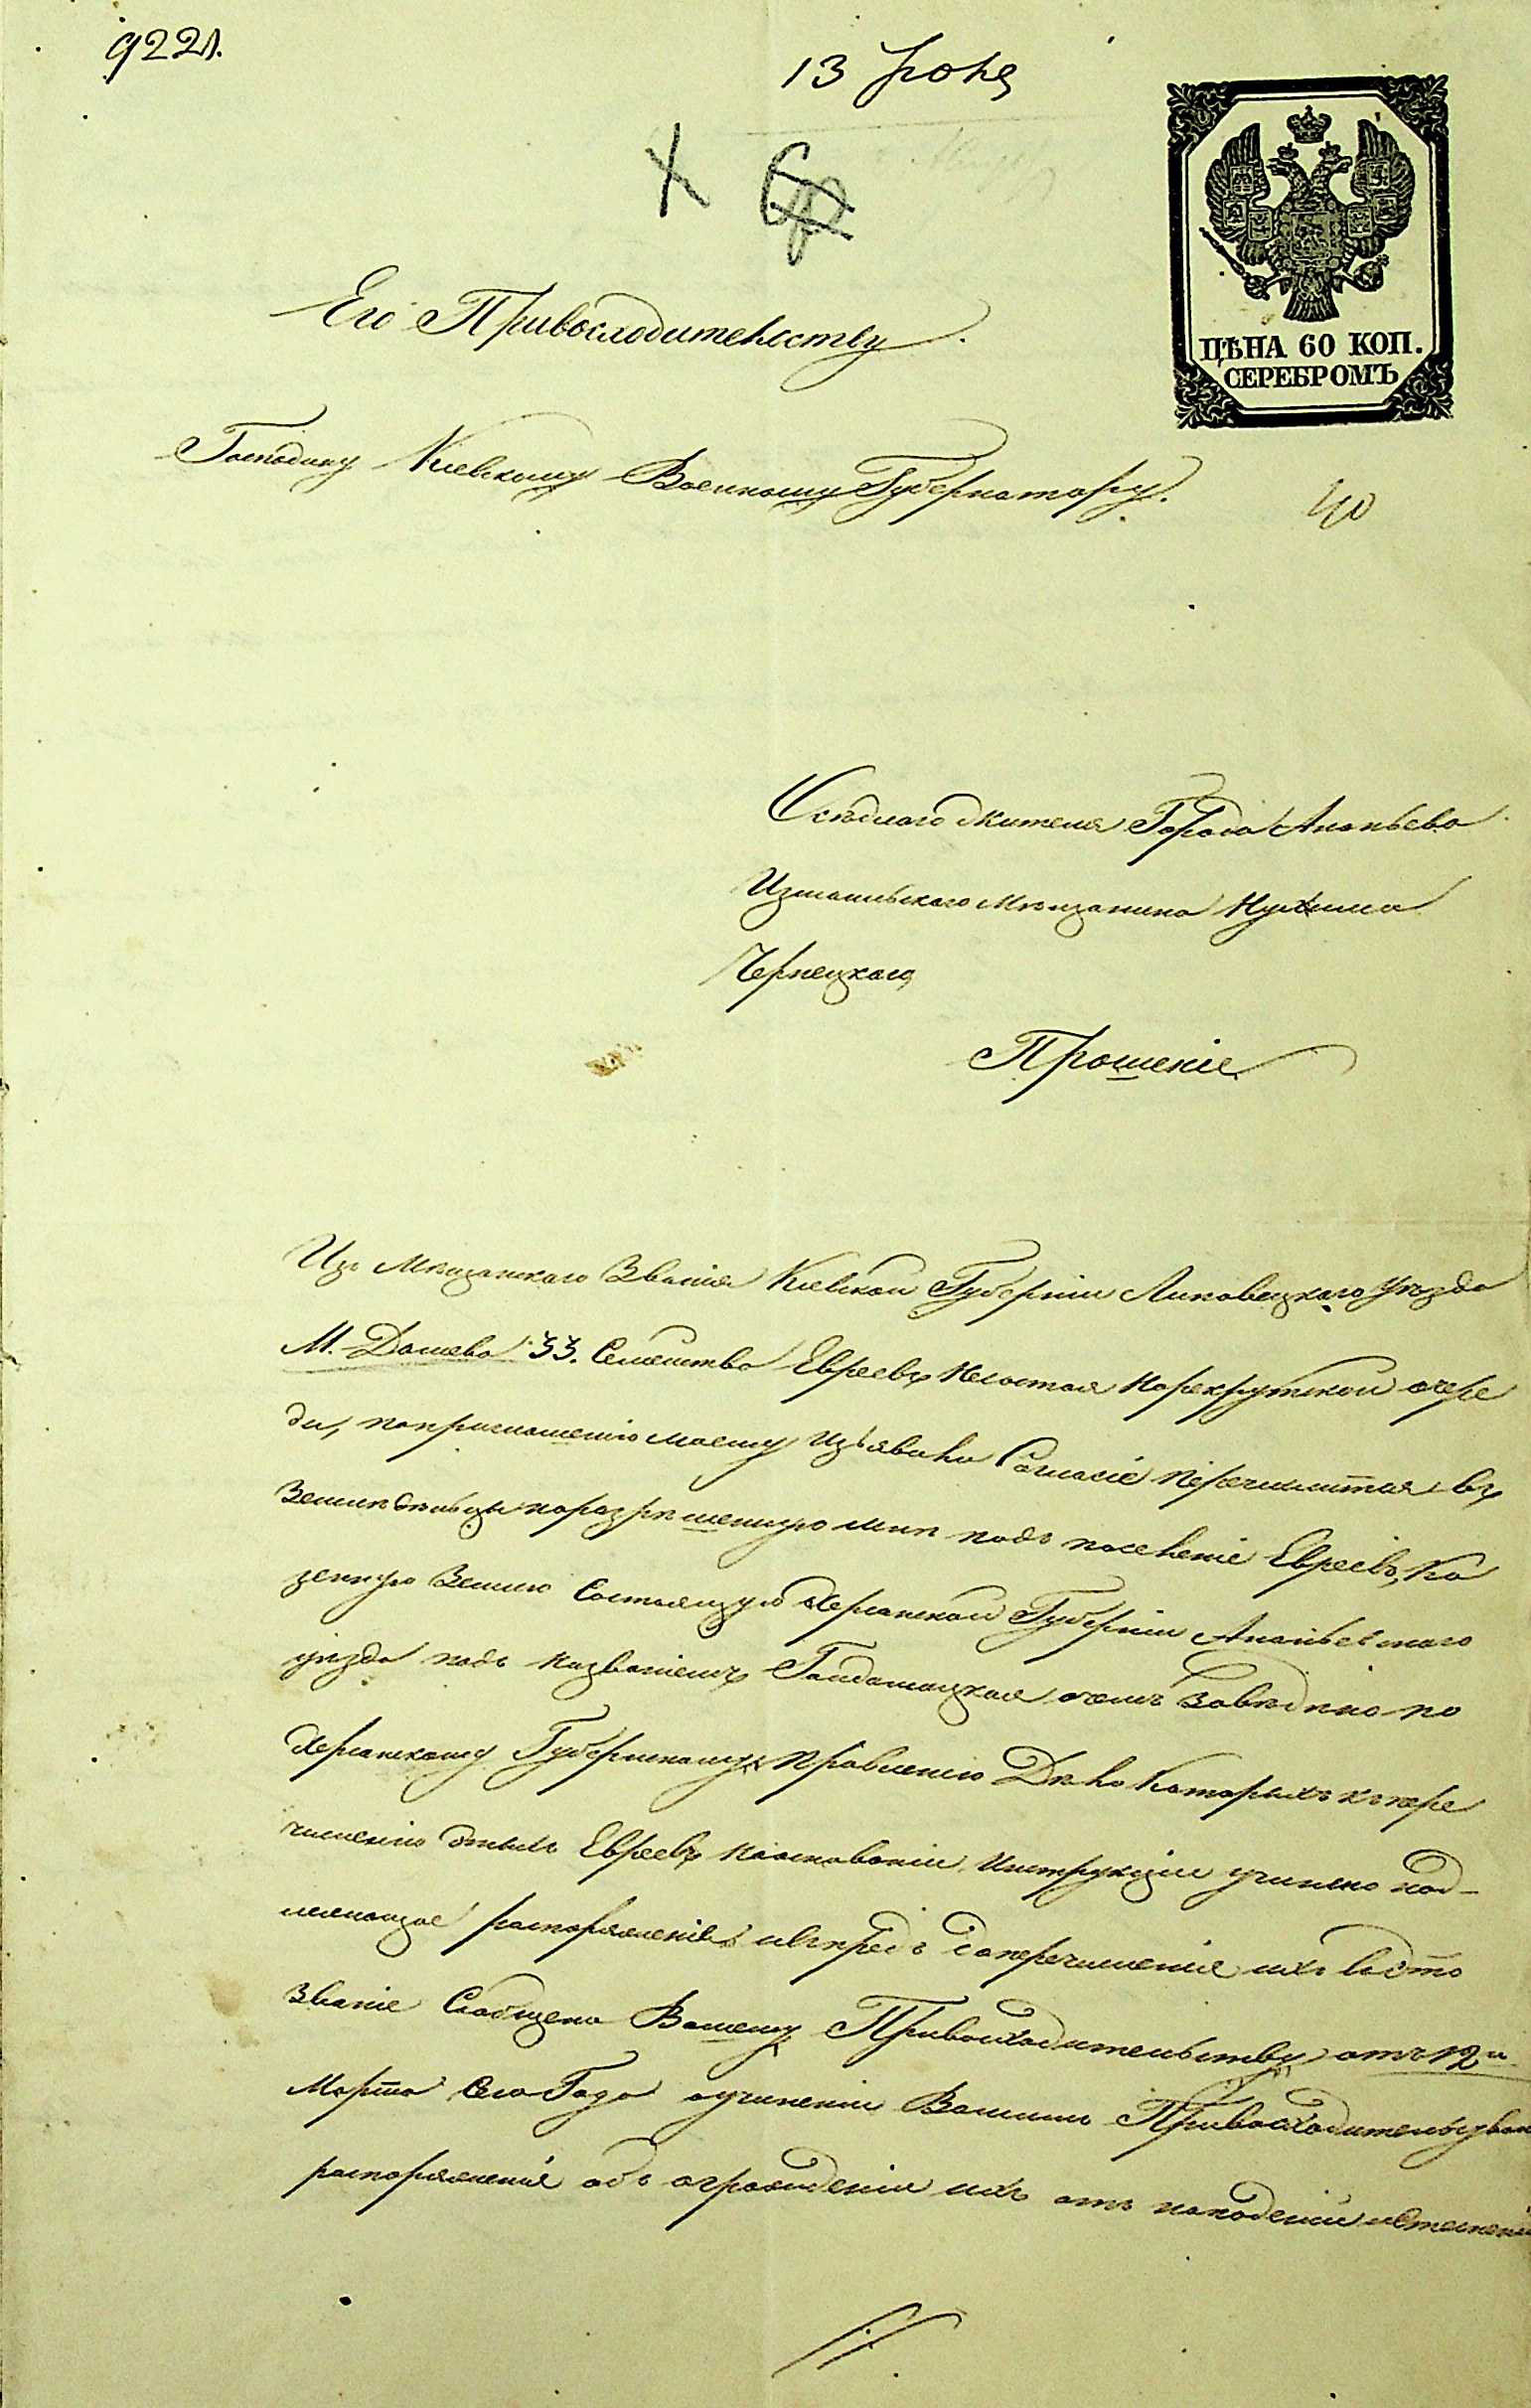 9221.
13 Іюня
ЦѢНА 60 КОП.
СЕРЕБРОМЪ
Его Привосходительству
Господину Киевскому Военному Губернатору.
40
Осѣдлаго жителя Города Ананьева
Измаильскаго Мѣщанина Нухима
Чернецкаго
Прошеніе
Изъ Мѣщанскаго Званія Киевской Губерніи Липовецкаго уѣзда
М. Дашева 33. Семейства Евреевъ Несостоя Нарекрутской очере
ди, поприглашенію моему изъявили Согласіе перечислится въ
Земледѣльцы наразрѣшенную мнѣ подъ поселеніе Евреевъ, Ка
зенную Землю Состоящую Херсонской Губерніи Ананьевскаго
уѣзда подъ названіемъ Гандамацкая очемъ Заведено по
Херсонскому Губернскому Правленію Дѣло Которыхъ къпере
численію этихъ Евреевъ Наоснованіи Инструкціи учинено над-
лежащое распоряженіе ивпредь доперечисленіе ихъ въэто
Званіе Сообщено Вашему Привосходительству отъ 12 и
Марта Сего Года оучиненіи Вашимъ Привосходительством
распоряженіе объ огражденіи ихъ отъ нападеній истесненій